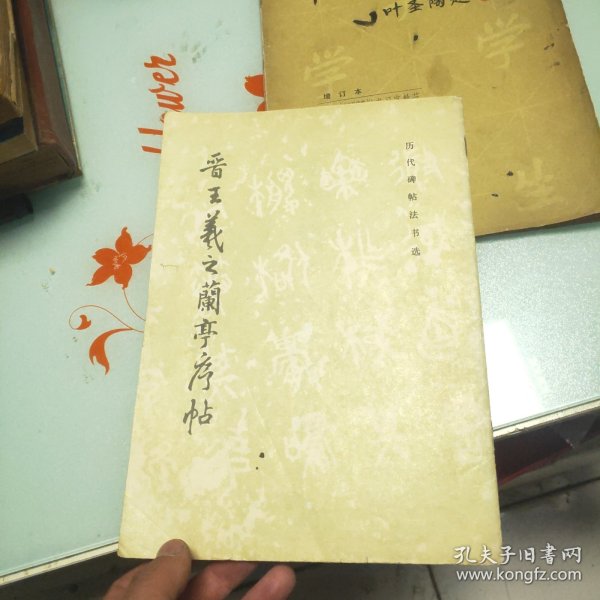 历代碑帖法书选
晋王羲之蘭亭序帖
叶圣陶题
增订本
学
学
生
flower
孔夫子旧书网
www.kongfz.com